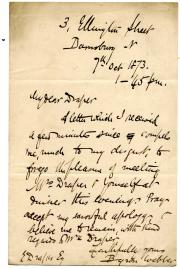 3, Ellington Street
Barnsbury N
7th Oct 1873.
1-45 pm.
My dear Draper
A letter which I received
a few minutes since compels
me, much to my disgust, to
forego the pleasure of meeting
Mrs Draper & yourself at
dinner this evening. Pray
accept my sorrowful apology &
believe me to remain, with kind
regards to Mrs Draper,
Faithfully yours
Byron Webber
E Draper Esq